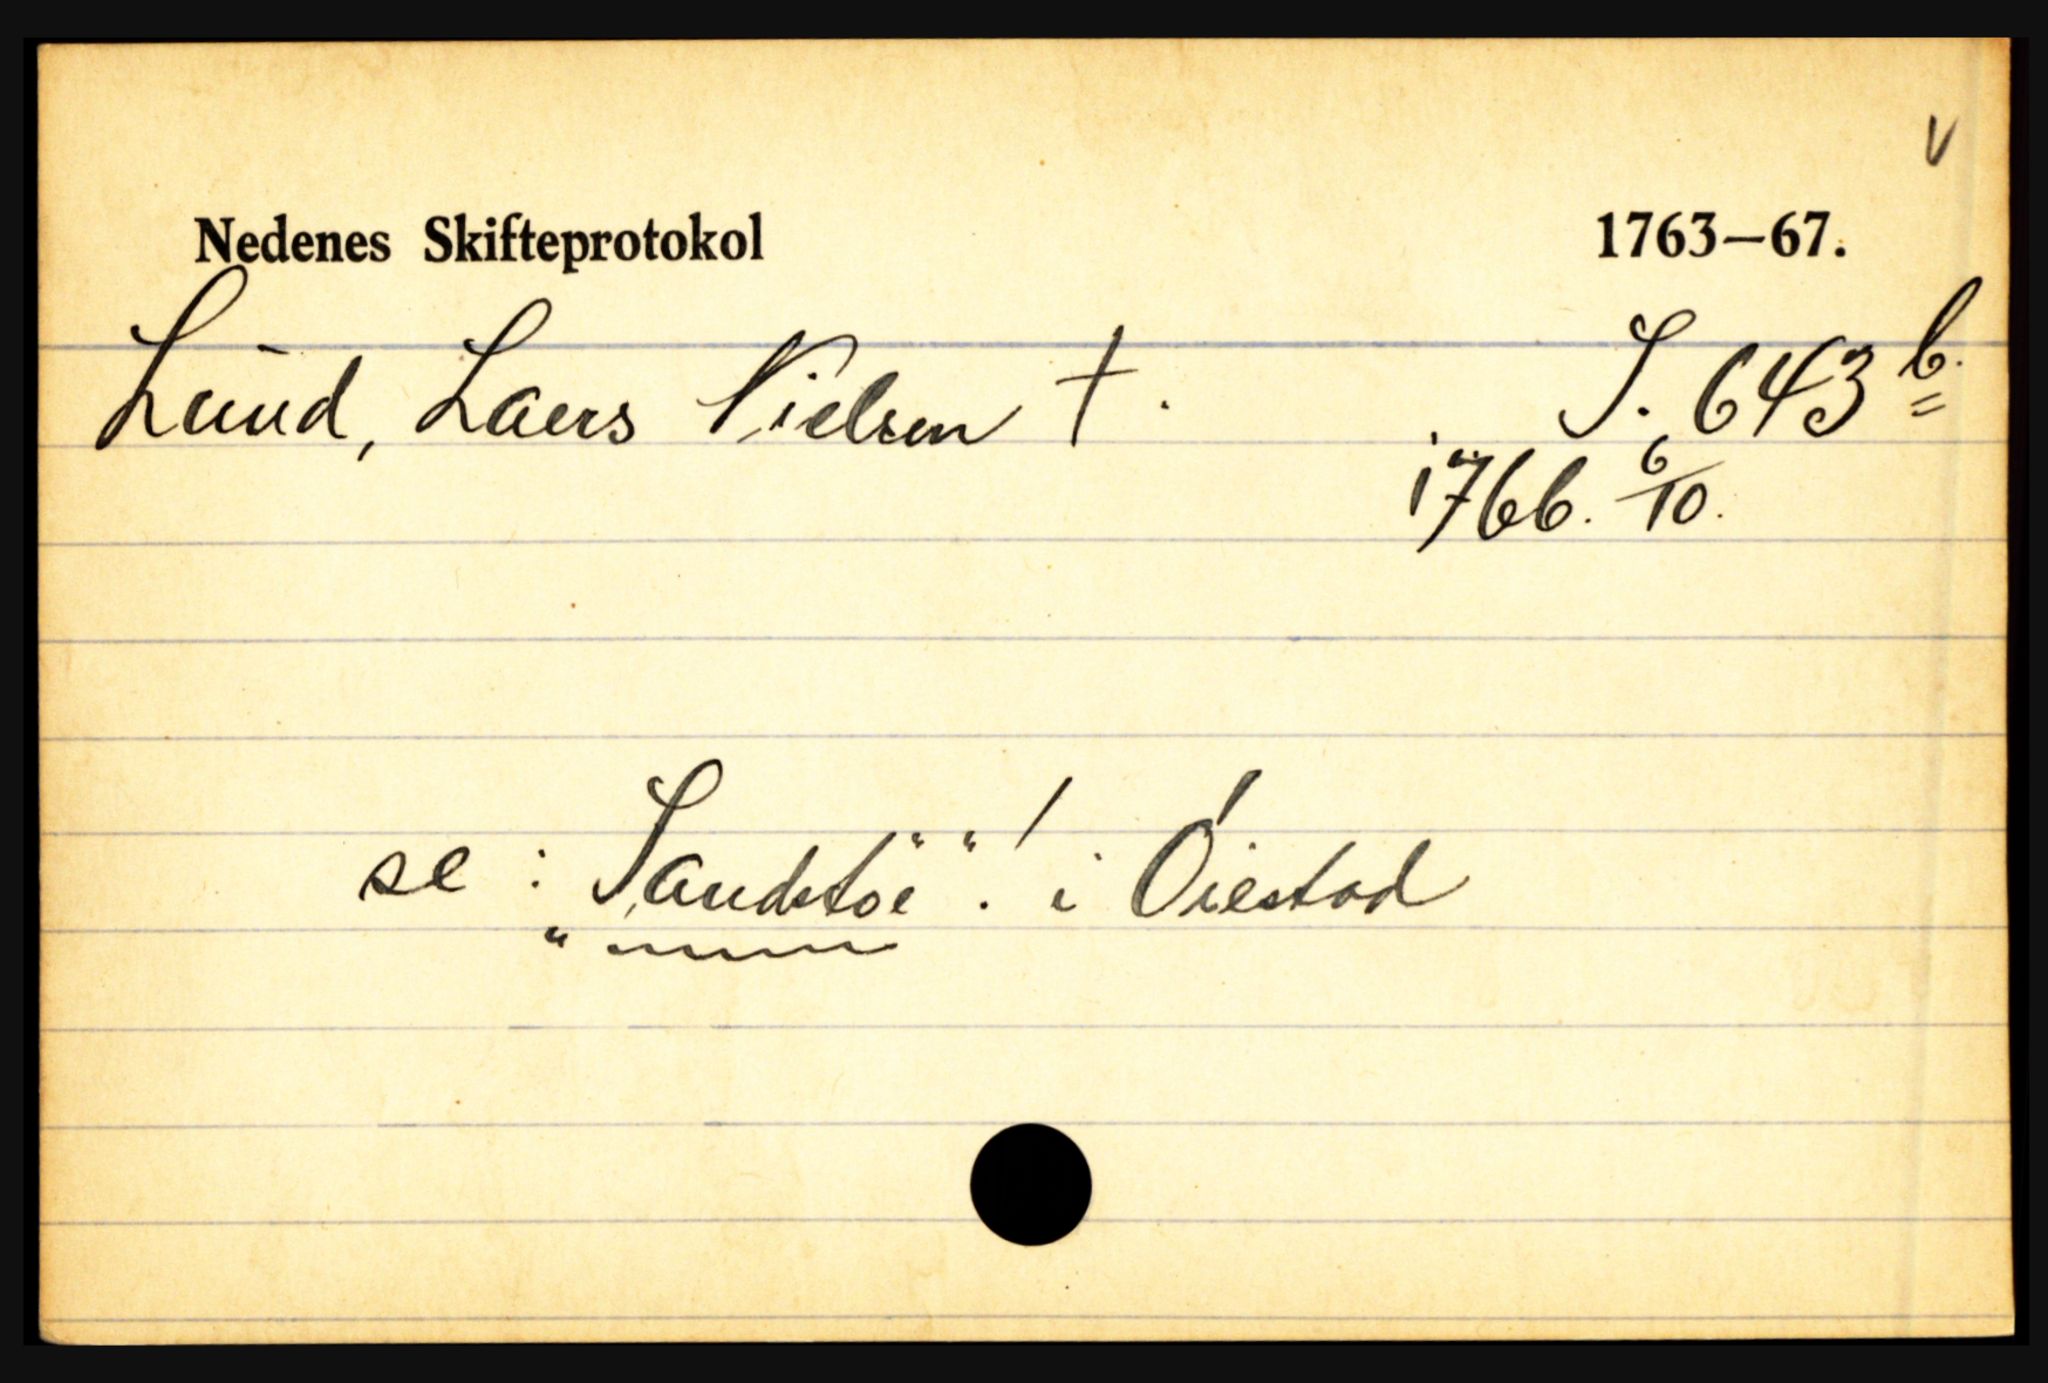 v
Nedenes Skifteprotokol 1763–67.
Lund, Laers Nielsen †. S. 643 b.
1766. 6/10.
se: „Sandstöe“! i Øiestad